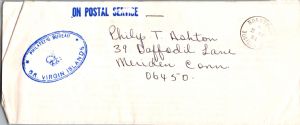 ON POSTAL SERVICE
Philip T Ashton
39 Daffodil Lane
Meriden Conn.
06450.
PHILATELIC BUREAU
BR. VIRGIN ISLANDS